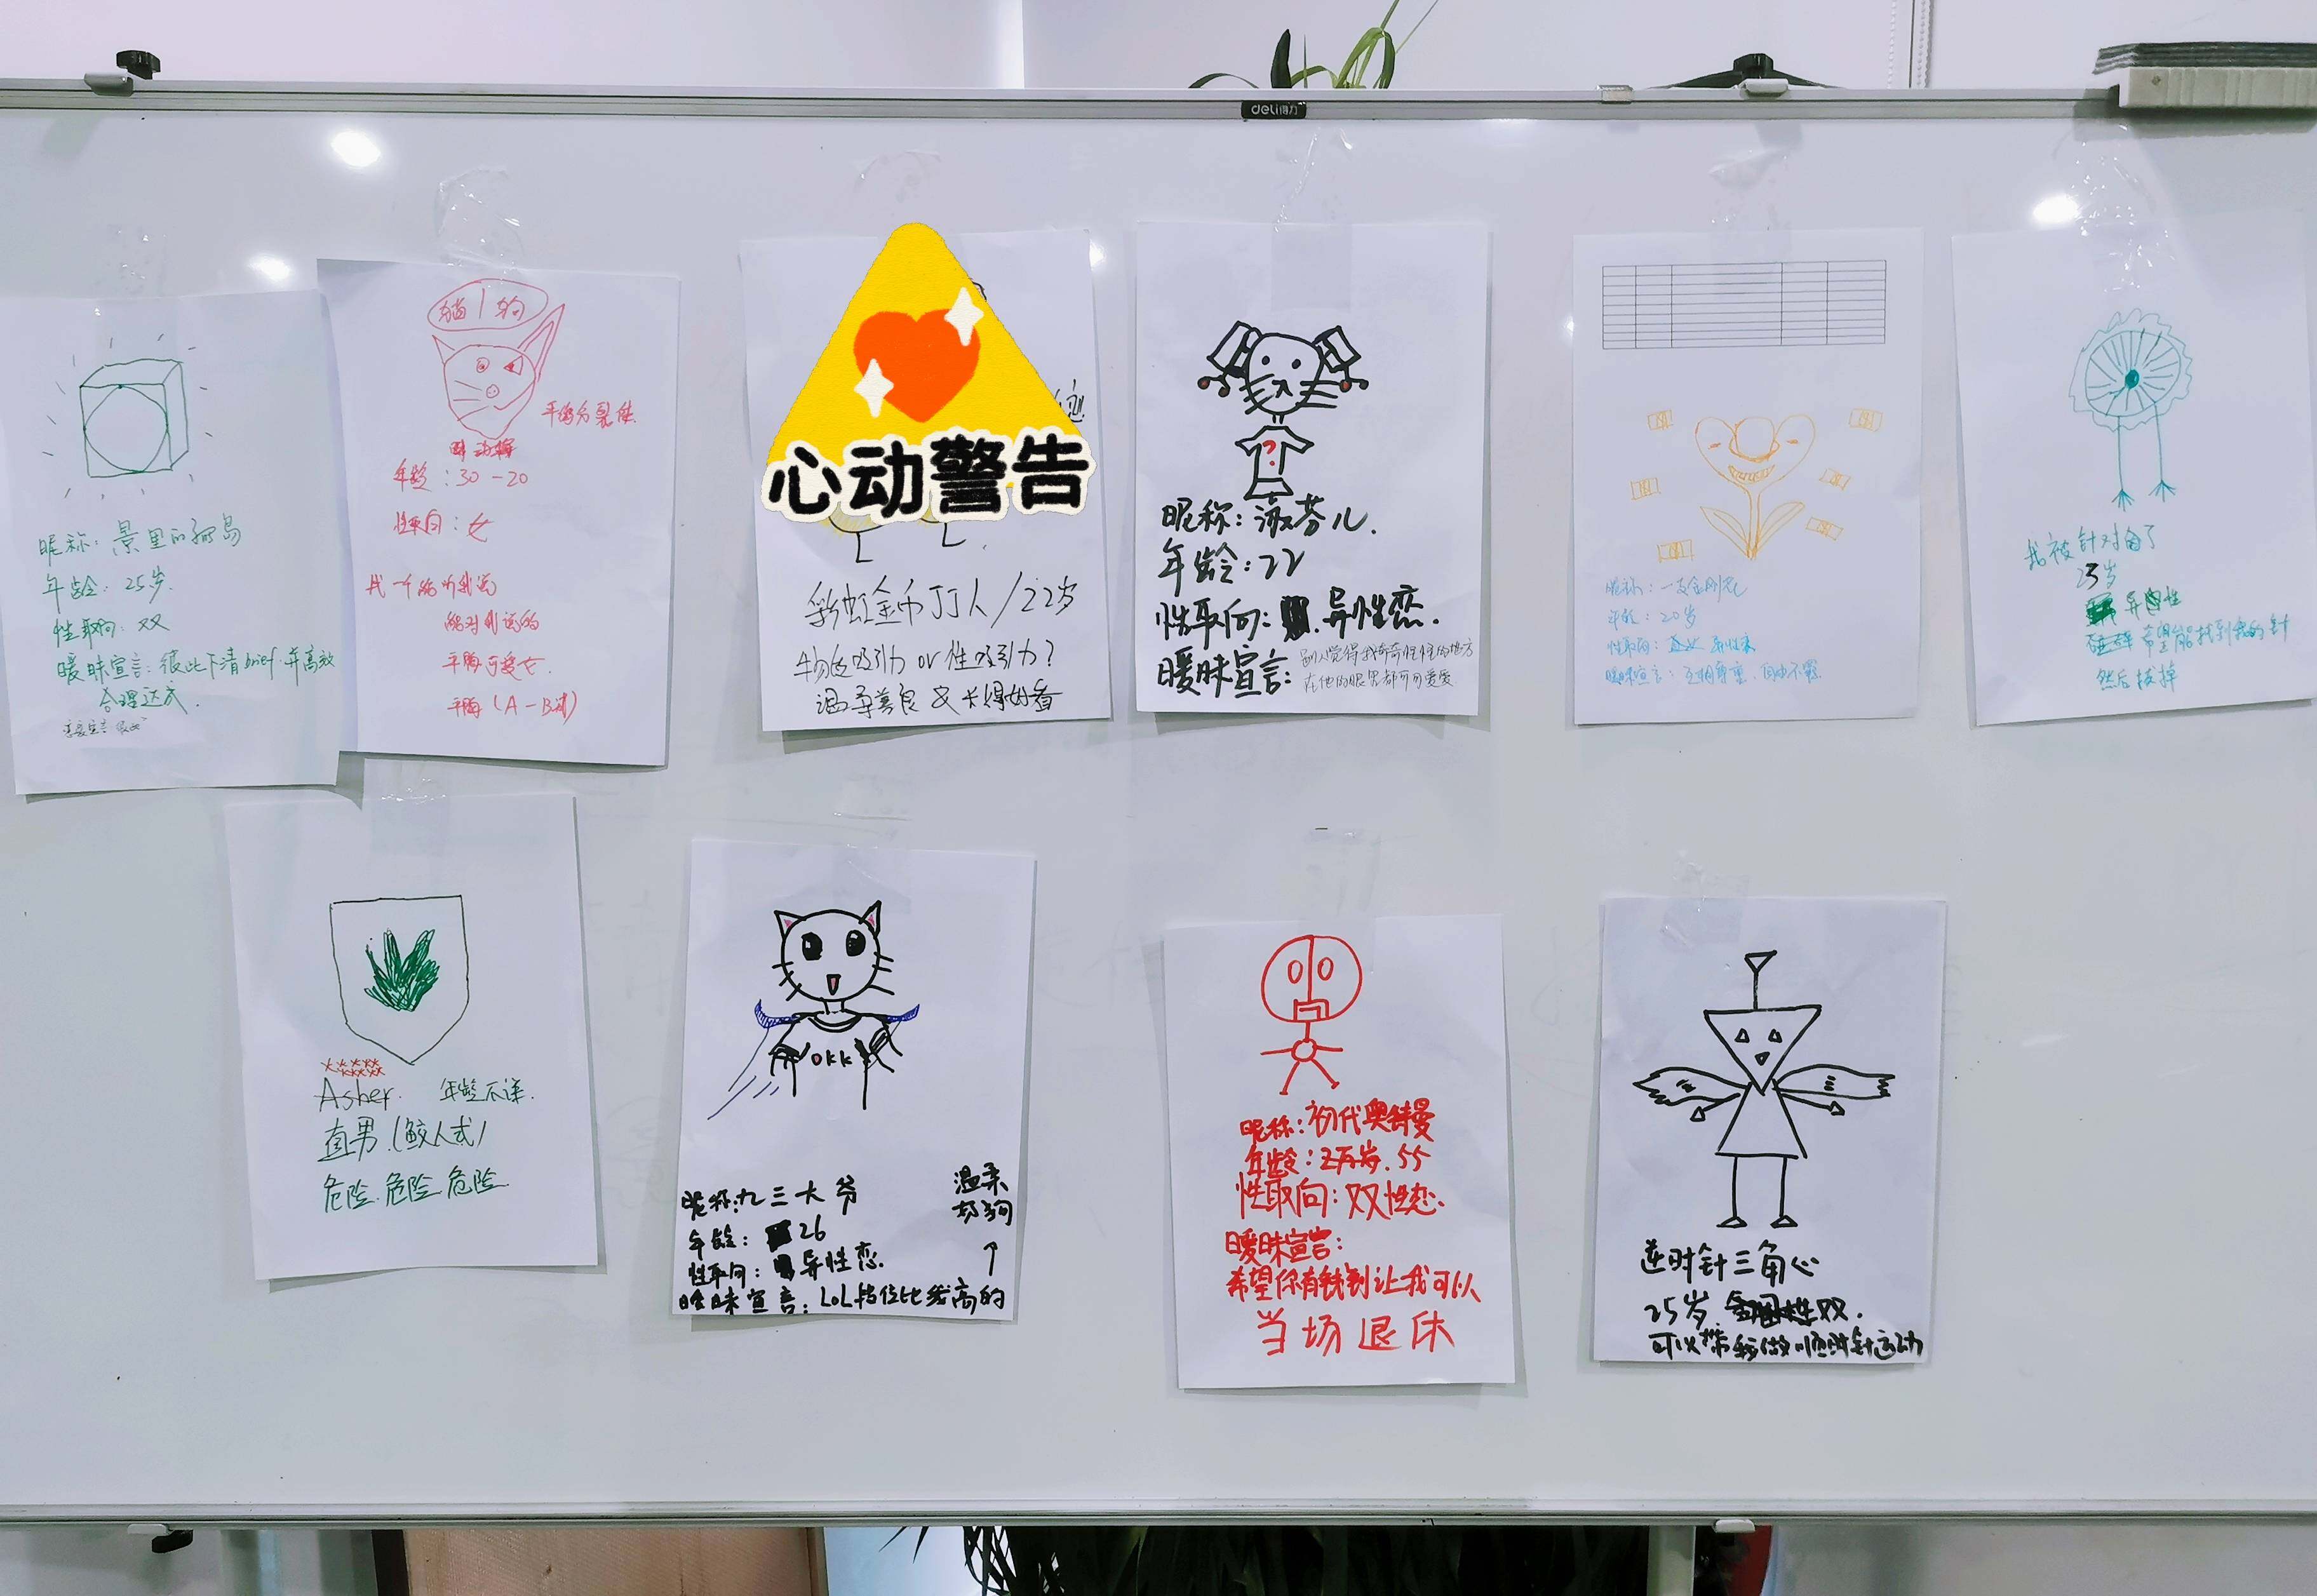 deli得力
昵称: 景里的孤岛
年龄: 25岁.
性取向: 双
暧昧宣言: 彼此下清brief.并高效
合理达成.
猫|狗
平均分裂体
年龄:30-20
性取向:女
找一个能听我说
能对我说的
平胸可爱女.
平胸(A-B球)
心动警告
彩虹金币丁丁人/22岁
物质吸引力 or 性吸引力?
温柔善良 & 长得好看
昵称:淑芬儿.
年龄:22
性取向: 异性恋.
暧昧宣言:
别人觉得我奇奇怪怪的地方
在他的眼里都可可爱爱
昵称:一支金刚花
年龄:20岁
性取向: 异性恋
暧昧宣言:互相尊重.
我被针对角了
23岁
异性
希望能找到我的针
然后拔掉
Asher. 年龄不详.
直男.(鲛人式)
危险.危险.危险.
OKK
昵称:九三大爷
年龄: 26
性取向: 异性恋.
暧昧宣言: LOL段位比我高的
温柔
奶狗
昵称:初代奥特曼
年龄:2万岁.55
性取向:双性恋.
暧昧宣言:
希望你有钱到让我可以
当场退休
逆时针三角心
25岁. 双.
可以带我做顺时针运动